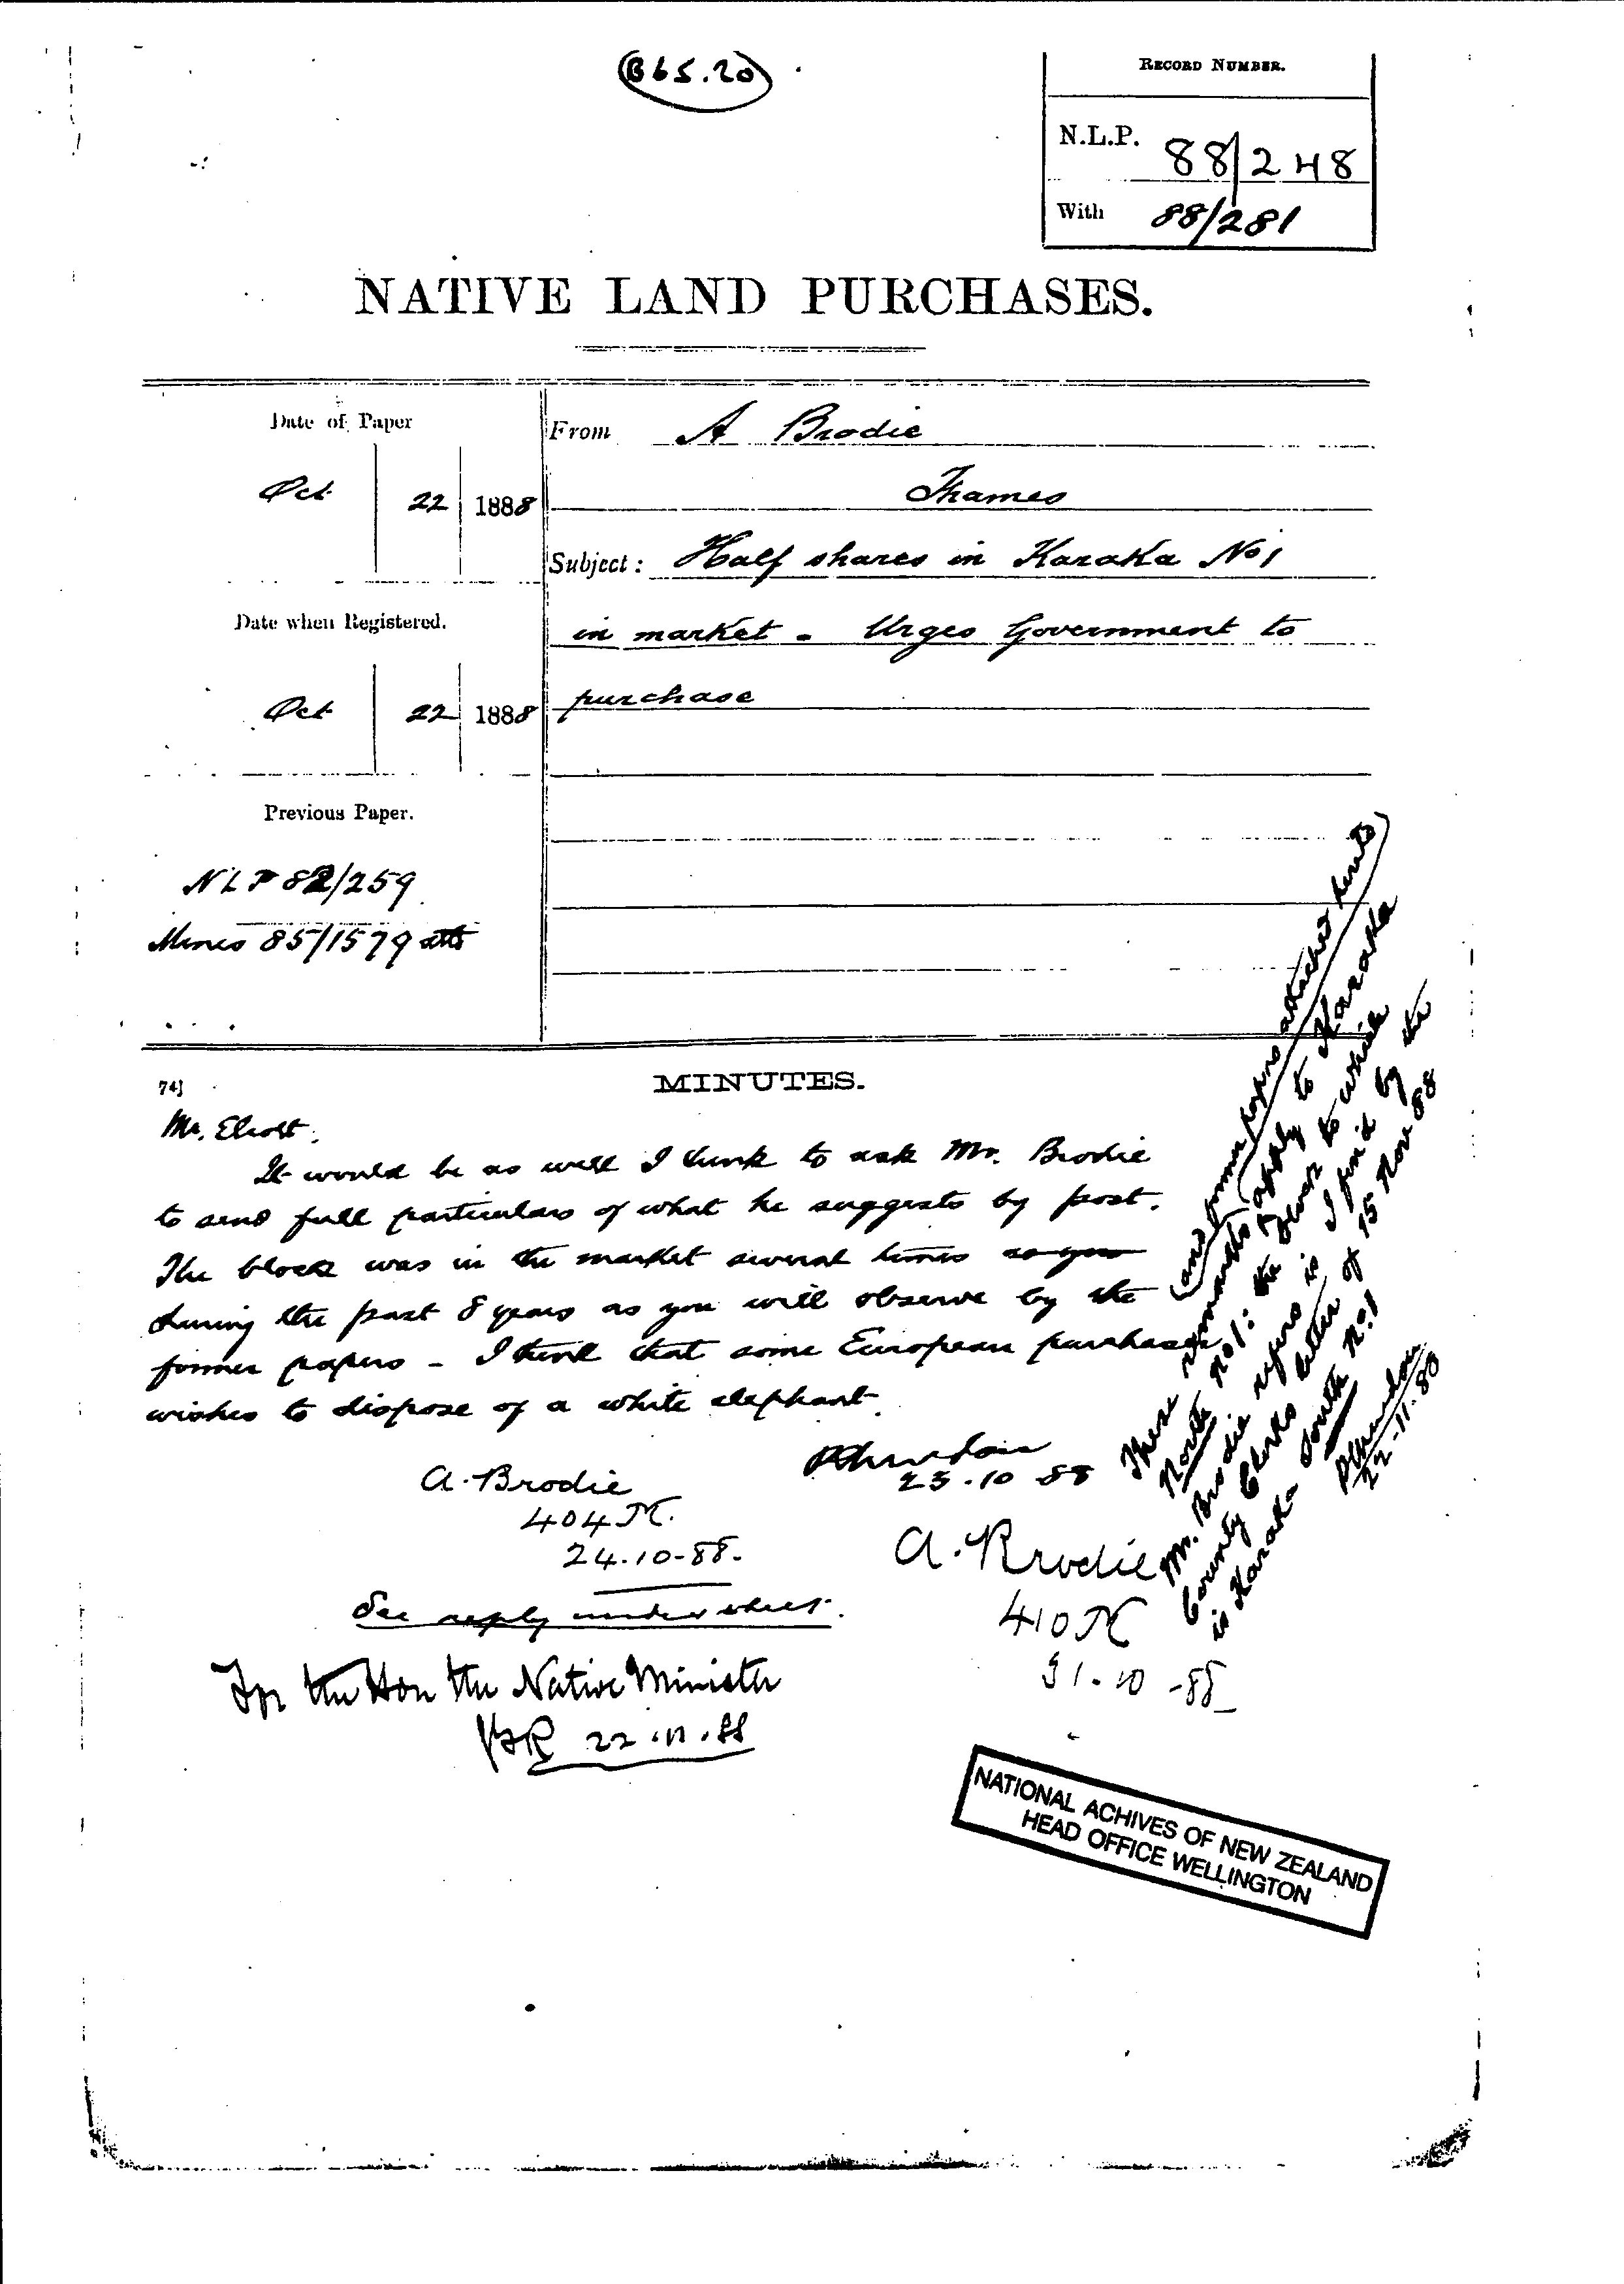 B 65.20
RECORD NUMBER.
N.L.P. 88/248
With 88/281
NATIVE LAND PURCHASES.
Date of Paper
Oct 22 1888
Date when Registered.
Oct 22 1888
Previous Paper.
NLP 82/259
Mines 85/1579
From A Brodie
Thames
Subject: Half shares in Karaka No 1
in market - Urges Government to
purchase
74]
MINUTES.
Mr. Eliott.
It would be as well I think to ask Mr. Brodie
to send full particulars of what he suggests by post.
The block was in the market several times
during the past 8 years as you will observe by the
former papers - I think that some European purchaser
wishes to dispose of a white elephant.
23.10 88
A. Brodie
404
24.10-88.
See reply under sheet.
A. Brodie
410
31.10-88
For the Hon the Native Minister
22.11.88
These remarks (and former papers attached hereto)
apply to Karaka
North No 1: the block to which
Mr. Brodie refers is I find by the
County Clerks letter of 15 Nov 88
is Karaka South No. 1
22-11-88
NATIONAL ACHIVES OF NEW ZEALAND
HEAD OFFICE WELLINGTON